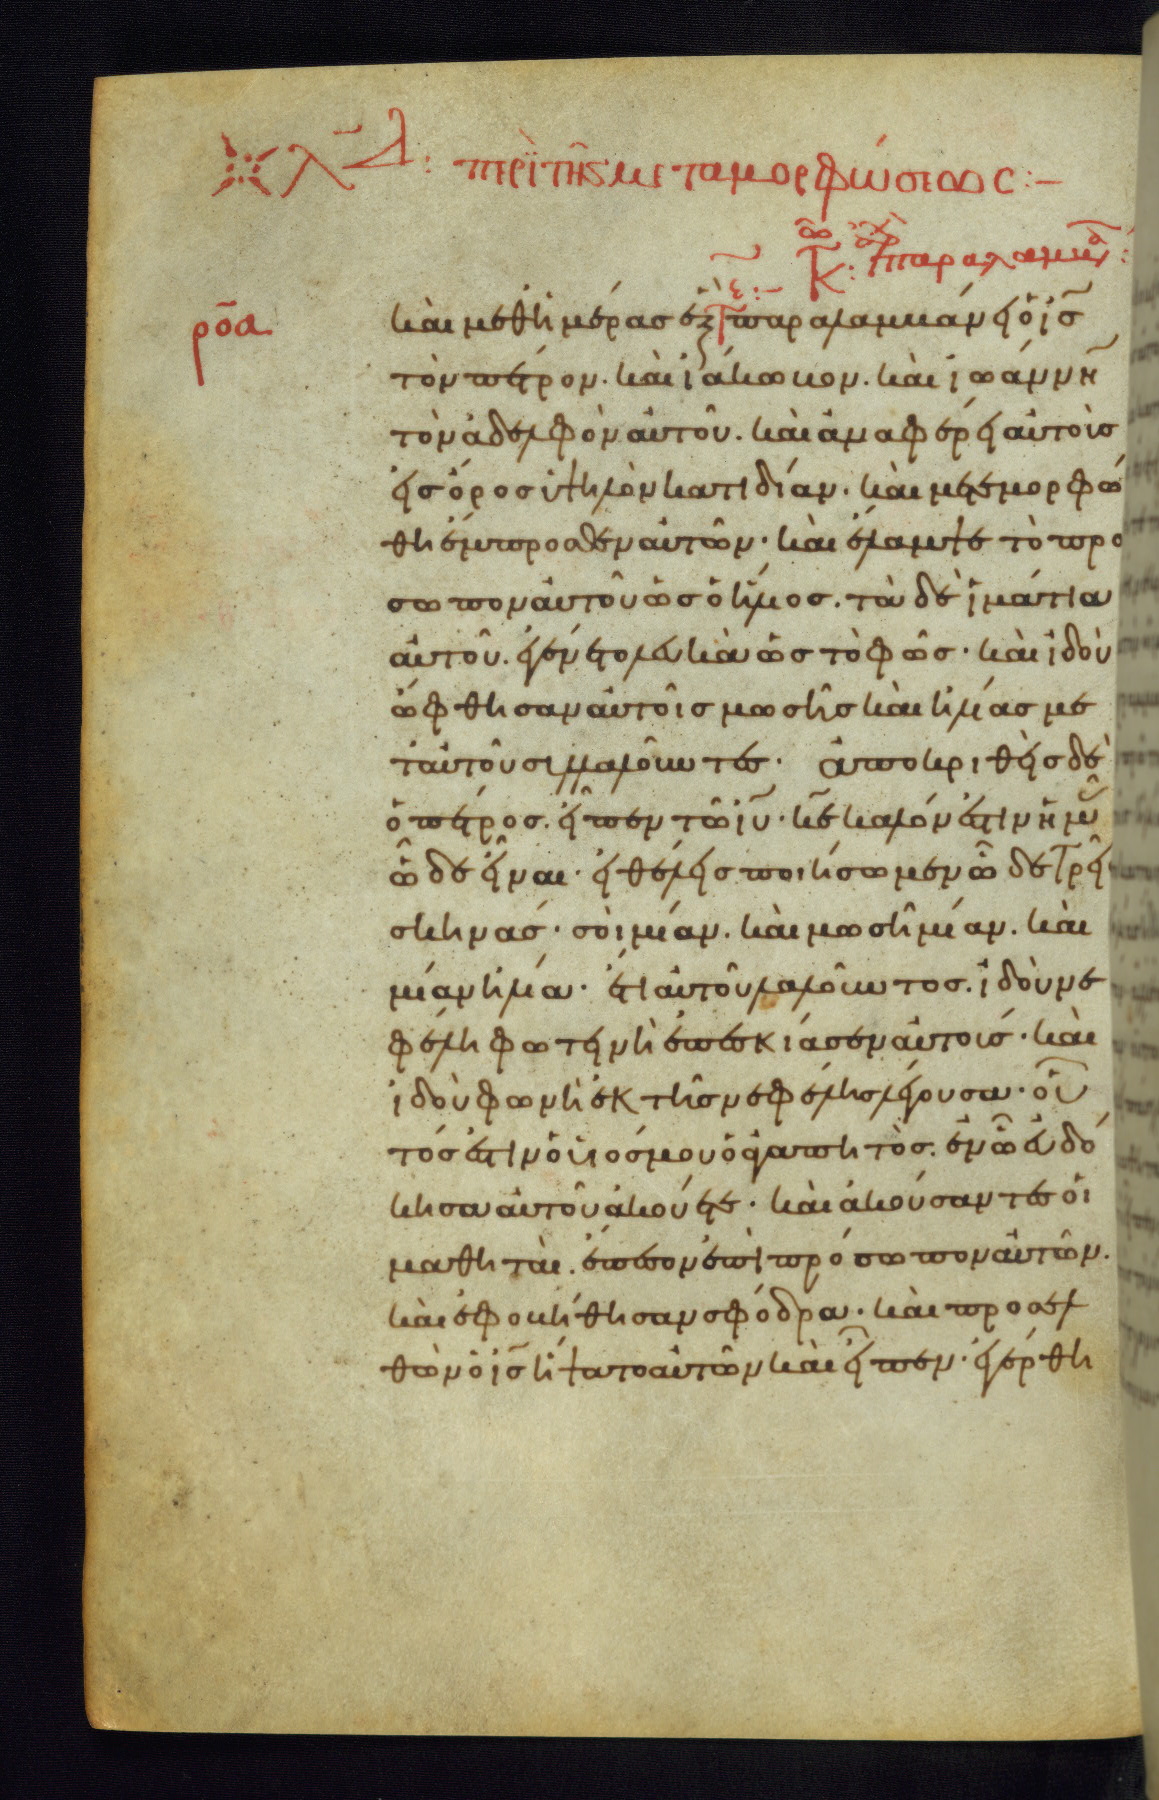 λ̅δ: περὶ τῆς μεταμορφώσεως :—
παραλαμβ
ρο̅α
καὶ μεθ ἡμέρας ἓξ παραλαμβάνει ὁ ι̅ς
τὸν πέτρον. καὶ ἰάκωβον. καὶ ἰωάννη
τὸν ἀδελφὸν αὐτοῦ. καὶ ἀναφέρει αὐτοὺς
εἰς ὄρος ὑψηλὸν κατιδίαν. καὶ μετεμορφώ
θη ἔμπροσθεν αὐτῶν. καὶ ἔλαμψε τὸ προ
σωπον αὐτοῦ ὡς ὁ ἥλιος. τὰ δὲ ἱμάτια
αὐτοῦ. ἐγένετο λευκὰ ὡς τὸ φῶς. καὶ ἰδοὺ
ὤφθησαν αὐτοῖς μωσῆς καὶ ἡλίας με
ταὐτοῦ συλλαλοῦντες. ἀποκριθεὶς δὲ
ὁ πέτρος. εἶπεν τῶ ι̅υ. κ̅ε καλόν ἐστιν ἡμᾶς
ὧδε εἶναι. εἰ θέλεις ποιήσωμεν ὧδε τρεῖς
σκηνάς. σοὶ μίαν. καὶ μωσῆ μίαν. καὶ
μίαν ἡλία. ἔτι αὐτοῦ λαλοῦντος. ἰδοὺ νε
φέλη φωτεινὴ ἐπεσκίασεν αὐτοις. καὶ
ἰδοὺ φωνὴ ἐκ τῆς νεφέλης λέγουσα. οὗ
τός ἐστιν ὁ υἱος μου ὁ ἀγαπητὸς. ἐν ὧ εὐδό
κησα αὐτοῦ ἀκούετε. καὶ ἀκούσαντες οἱ
μαθηταὶ. ἔπεσον ἐπὶ πρόσωπον αὐτῶν.
καὶ ἐφοβήθησαν σφόδρα. καὶ προσελ
θὼν ὁ ι̅ς ἥψατο αὐτῶν καὶ εἶπεν. ἐγέρθη